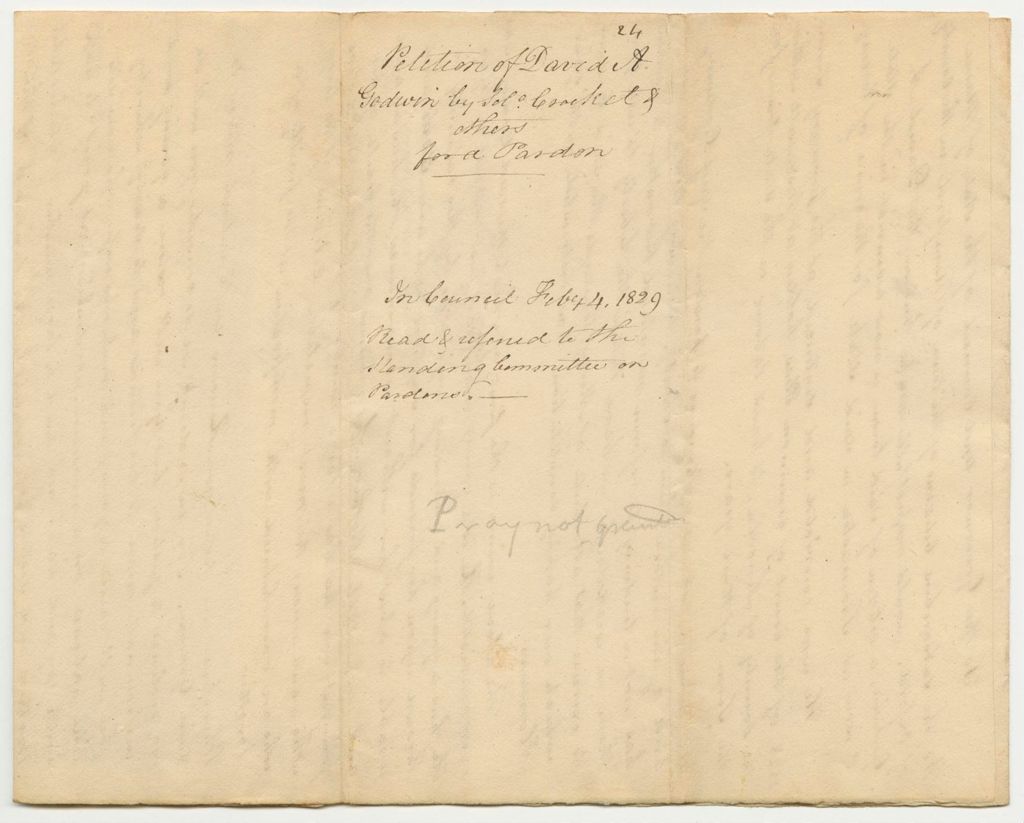 24
Petition of David A.
Godwin by Solo. Crocket &
others
for a Pardon
In Council Feby 4, 1829
Read & referred to the
Standing Committee on
Pardons.
Pray not